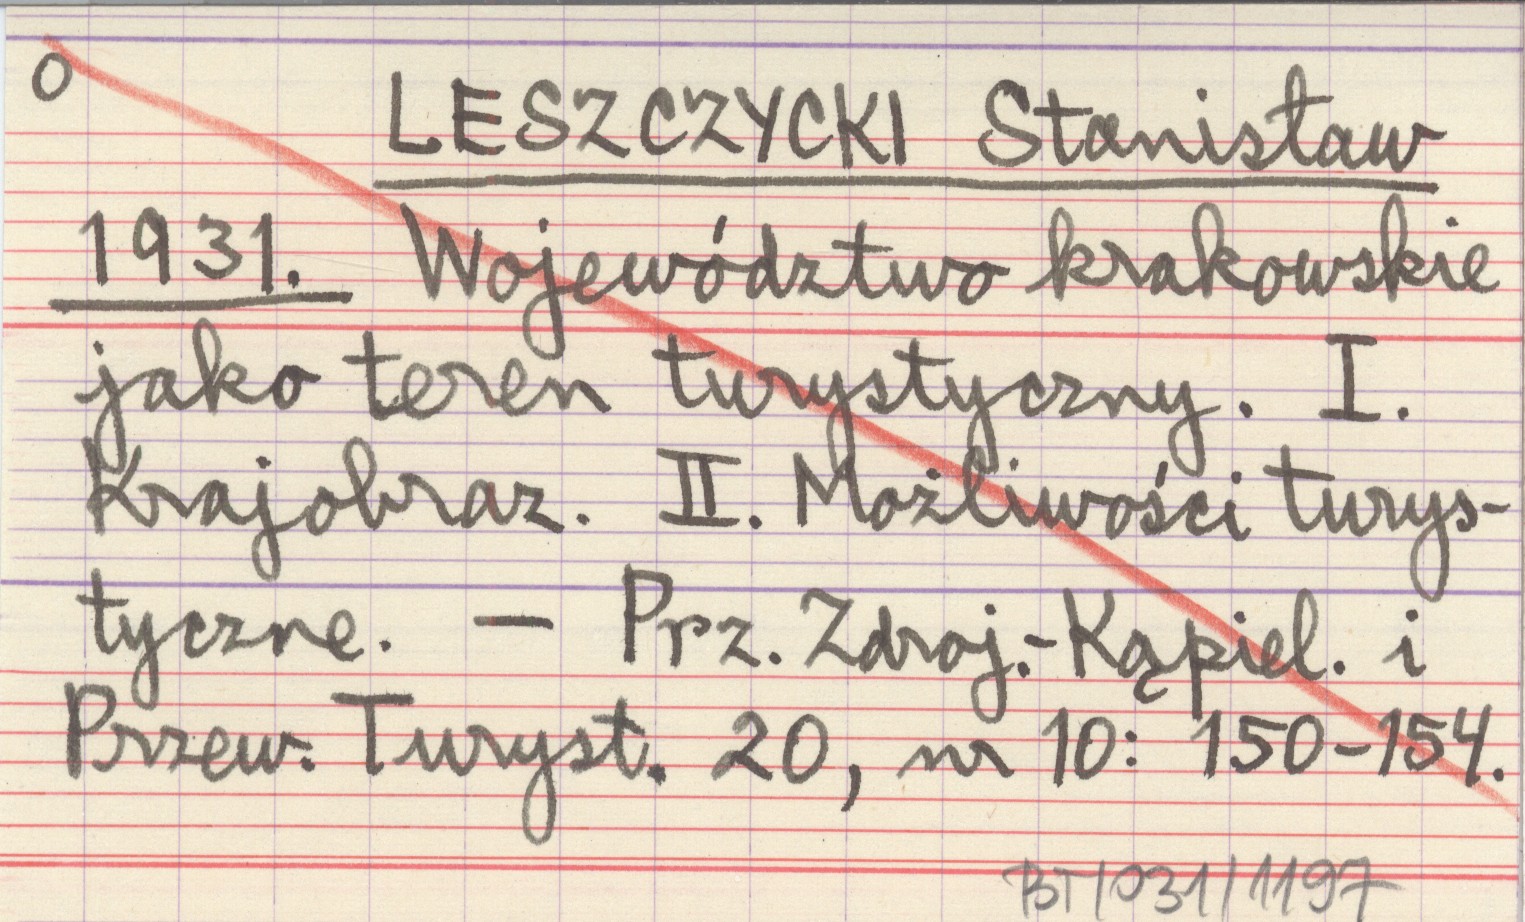 O
LESZCZYCKI Stanisław
1931. Województwo krakowskie
jako teren turystyczny. I.
Krajobraz. II. Możliwości turys-
tyczne. — Prz. Zdroj.-Kąpiel. i
Przew. Turyst. 20, nr 10: 150-154.
BT/031/1197